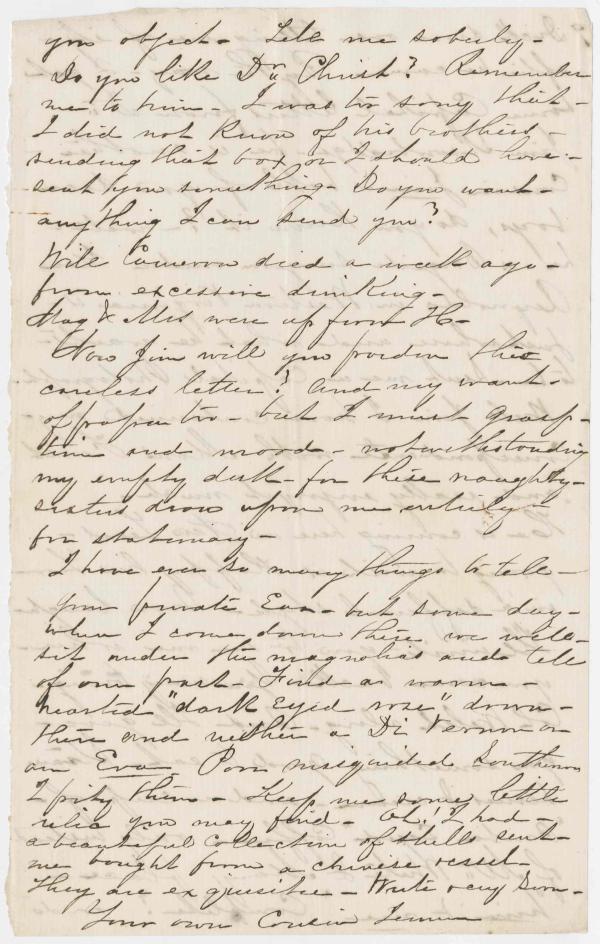 you object - Tell me soberly -
Do you like Dr. Christ? Remember
me to him - I was too sorry that -
I did not know of his brothers -
sending that box or I should have -
sent you something - Do you want -
anything I can send you?
Will Cameron died a week ago -
from excessive drinking -
Mag & Mrs were up from H -
Now Jim will you pardon this
careless letter? and my want -
of paper too - but I must grasp -
time and mood - notwithstanding
my empty desk - for these naughty -
sisters draw upon me entirely -
for stationary -
I have ever so many things to tell -
your private Ear - but some day -
when I come down there we will -
sit under the magnolias and tell
of our past - Find a warm -
hearted "dark Eyed rose" down -
there and neither a Di Vernon or
an Eva. Poor misguided Southerners
I pity them - Keep me some little
relic you may find - Oh! I had -
a beautiful collection of shells sent -
me bought from a chinese vessel -
They are exquisite - Write very soon -
Your own Cousin